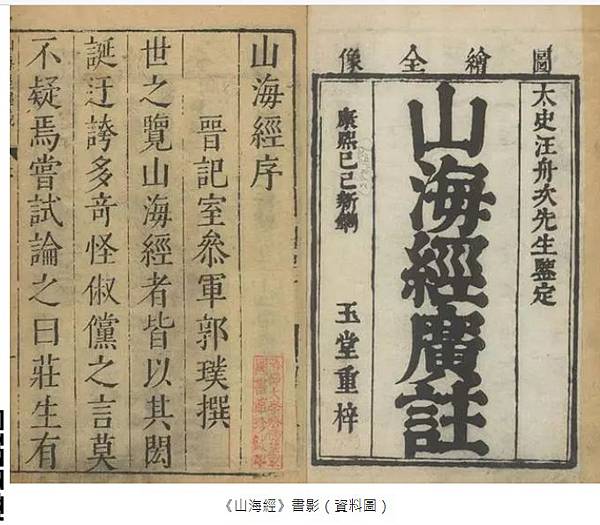 圖繪全像
太史汪舟次先生鑒定
山海經廣註
康熙己巳新鐫
玉堂重梓
山海經序
晉記室叅軍郭璞撰
世之覽山海經者皆以其閎
誕迂誇多奇怪俶儻之言莫
不疑焉嘗試論之曰莊生有
《山海經》書影（資料圖）